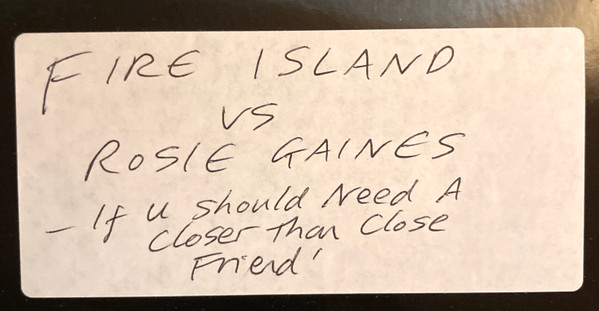 FIRE ISLAND
VS
ROSIE GAINES
- If U should Need A
Closer Than Close
Friend'